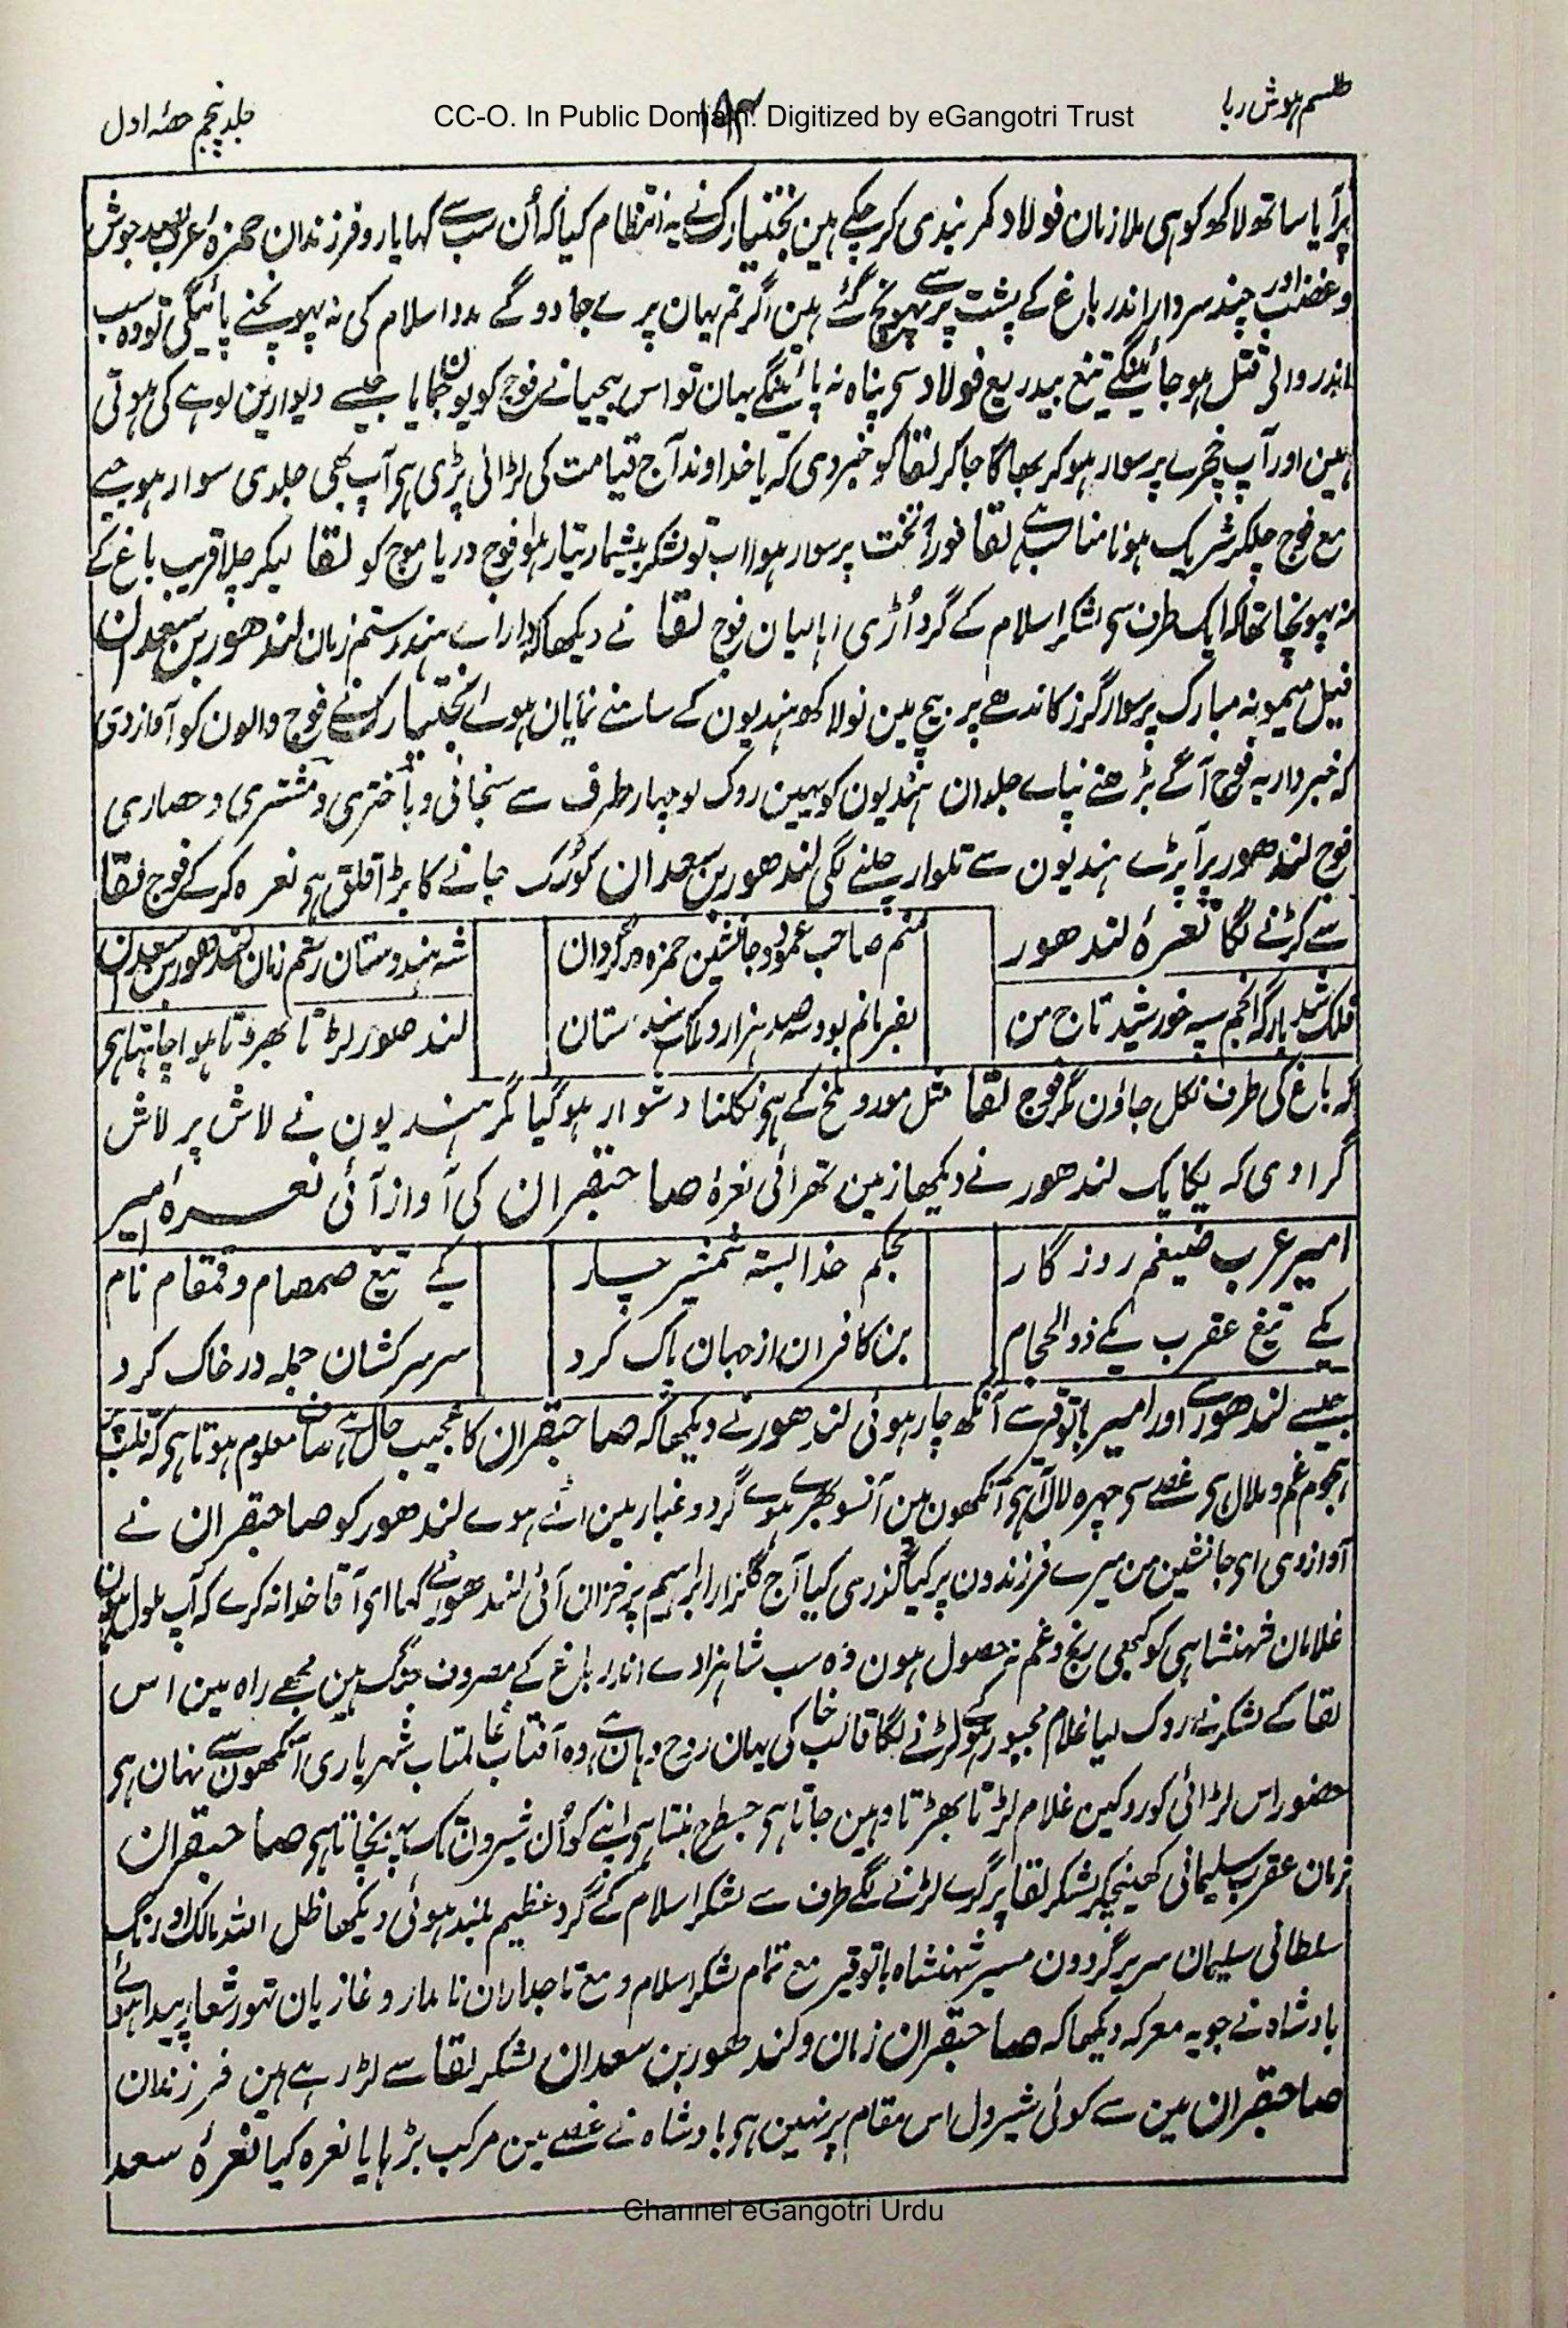 طلسم ہوش ربا
CC-O. In Public Domain. Digitized by eGangotri Trust
جلد پنجم حصّہ اول
پر آیا ساتھ لاکھ کوہی ملازمان فولاد کمر بندی کر چکے ہین بختیارک نے یہ انتظام کیا کہ اُن سب سے کہا یارو فرزندان حمزۂ عرب بعد جوش
و غضب اور چند سردار اندر باغ کے پشت پر سے پہونچ گئے ہین اگر تم یہان پرے جما دو گے مدد اسلام کی نہ پہونچنے پائیگی تو وہ سب
اندر والی قتل ہو جائینگے تیغ بیدریغ فولاد سی پناہ نہ پائینگے یہان تو اس بیحیا نے فوج کو یون جمایا جیسے دیوارین لوہے کی ہوتی
ہین اور آپ خچرے پر سوار ہو کر بھاگا جا کر لقا کو خبر دی کہ یا خداوند آج قیامت کی لڑائی پڑی ہی آپ بھی جلدی سوار ہو جیے
مع فوج چلکر شریک ہونا مناسب ہے لقا فوراً تخت پر سوار ہوا اب تو لشکر بیشمار تیار ہوا فوج دریا موج کو لقا لیکر چلا قریب باغ کے
نہ پہونچا تھا کہ ایک طرف سی لشکر اسلام کے گرد اُڑی اہالیان فوج لقا نے دیکھا کہ دارا ے ہند رستم زمان لندھور بن سعدان
فیل میمونہ مبارک پر سوار گرز کاندھے پر بیچ مین نو لاکھ ہندیون کے سامنے نمایان ہوے بختیارک نے فوج والون کو آواز دی
کہ خبردار یہ فوج آگے بڑھنے نپاے جلد ان ہندیون کو یہین روک لو چہار طرف سے سنجانی و باختری و مشتری و حصاری
فوج لندھور پر آ پڑے ہندیون سے تلوار چلنے لگی لندھور بن سعدان کو رُک جانے کا بڑا قلق ہی نعرہ کر کے فوج لقا
سے لڑنے لگا نعرۂ لندھور
منم صاحب عمود و جانشین حمزہ در گردان
شہ ہندوستان رستم زمان لندھور بن سعدان
فلک شد بارگہ انجم سپہ خورشید تاج من
بفرمانم بود سہ صد ہزار و ملک ہندوستان
لندھور لڑتا بھڑتا ہوا چاہتا ہی
کہ باغ کی طرف نکل جاؤن مگر فوج لقا مثل مور و ملخ کے ہی نکلنا دشوار ہو گیا مگر ہندیون نے لاش پر لاش
گرا دی کہ یکایک لندھور نے دیکھا زمین تھرائی نعرۂ صاحبقران کی آواز آئی نعرۂ امیر
امیر عرب ضیغم روزگار
بحکم خدا بستہ شمشیر چار
یکے تیغ صمصام و قمقام نام
یکے تیغ عقرب یکے ذوالحجام
بن کافران از جہان پاک کرد
سر سرکشان جملہ در خاک کرد
جیسے لندھور سے اور امیر باتوقیر سے آنکھ چار ہوئی لندھور نے دیکھا کہ صاحبقران کا عجیب حال ہے صاف معلوم ہوتا ہی کہ قلب پر
ہجوم غم و ملال ہی غصے سی چہرہ لال ہی آنکھون مین آنسو بھرے ہوے گرد و غبار مین اٹے ہوے لندھور کو صاحبقران نے
آواز دی ای جانشین من میرے فرزندون پر کیا گذری کیا آج گلزار ابراہیم پر خزان آئی لندھور نے کہا ای آقا خدا نہ کرے کہ آپ ملول ہون
غلامان شہنشاہی کو کبھی رنج و غم نہ حصول ہون وہ سب شاہزادے اندر باغ کے مصروف جنگ ہین مجھے راہ مین اس
لقا کے لشکر نے روک لیا غلام مجبور ہو کے لڑنے لگا قالب خاکی یہان روح وہان ہے وہ آفتاب عالمتاب شہریاری آنکھون سے نہان ہی
حضور اس لڑائی کو روکین غلام لڑتا بھڑتا وہین جاتا ہی جسطرح بنتا ہی اپنے کو اُن شیرون تک پہنچاتا ہی صاحبقران
زمان عقرب سلیمانی کھینچکر لشکر لقا پر گرے لڑنے لگے طرف سے لشکر اسلام کے گرد عظیم بلند ہوئی دیکھا ظل اللہ مالک اورنگ
سلطانی سلیمان سریر گردون مسیر شہنشاہ باتوقیر مع تمام لشکر اسلام و مع تاجداران نامدار و غازیان تہور شعار پیدا ہوئے
بادشاہ نے جو یہ معرکہ دیکھا کہ صاحبقران زمان و لندھور بن سعدان لشکر لقا سے لڑ رہے ہین فرزندان
صاحبقران مین سے کوئی شیردل اس مقام پر نہین ہی بادشاہ نے غصے مین مرکب بڑہایا نعرہ کیا نعرۂ سعد
Channel eGangotri Urdu